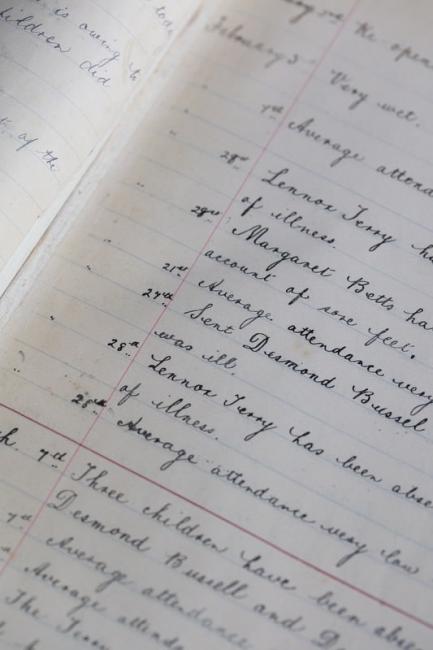 is owing to
children did
of the
Re open
February 5th Very wet.
" 7th Average attend
" 28th Lennox Terry ha
of illness.
" 28th Margaret Betts ha
account of sore feet.
" 21st Average attendance very
" 27th Sent Desmond Bussell
was ill.
" 28th Lennox Terry has been abse
of illness.
" 28th Average attendance very low
ch. 7th Three children have been abse
Desmond Bussell and D
" 7th Average attendance
" Average attenda
The Terry